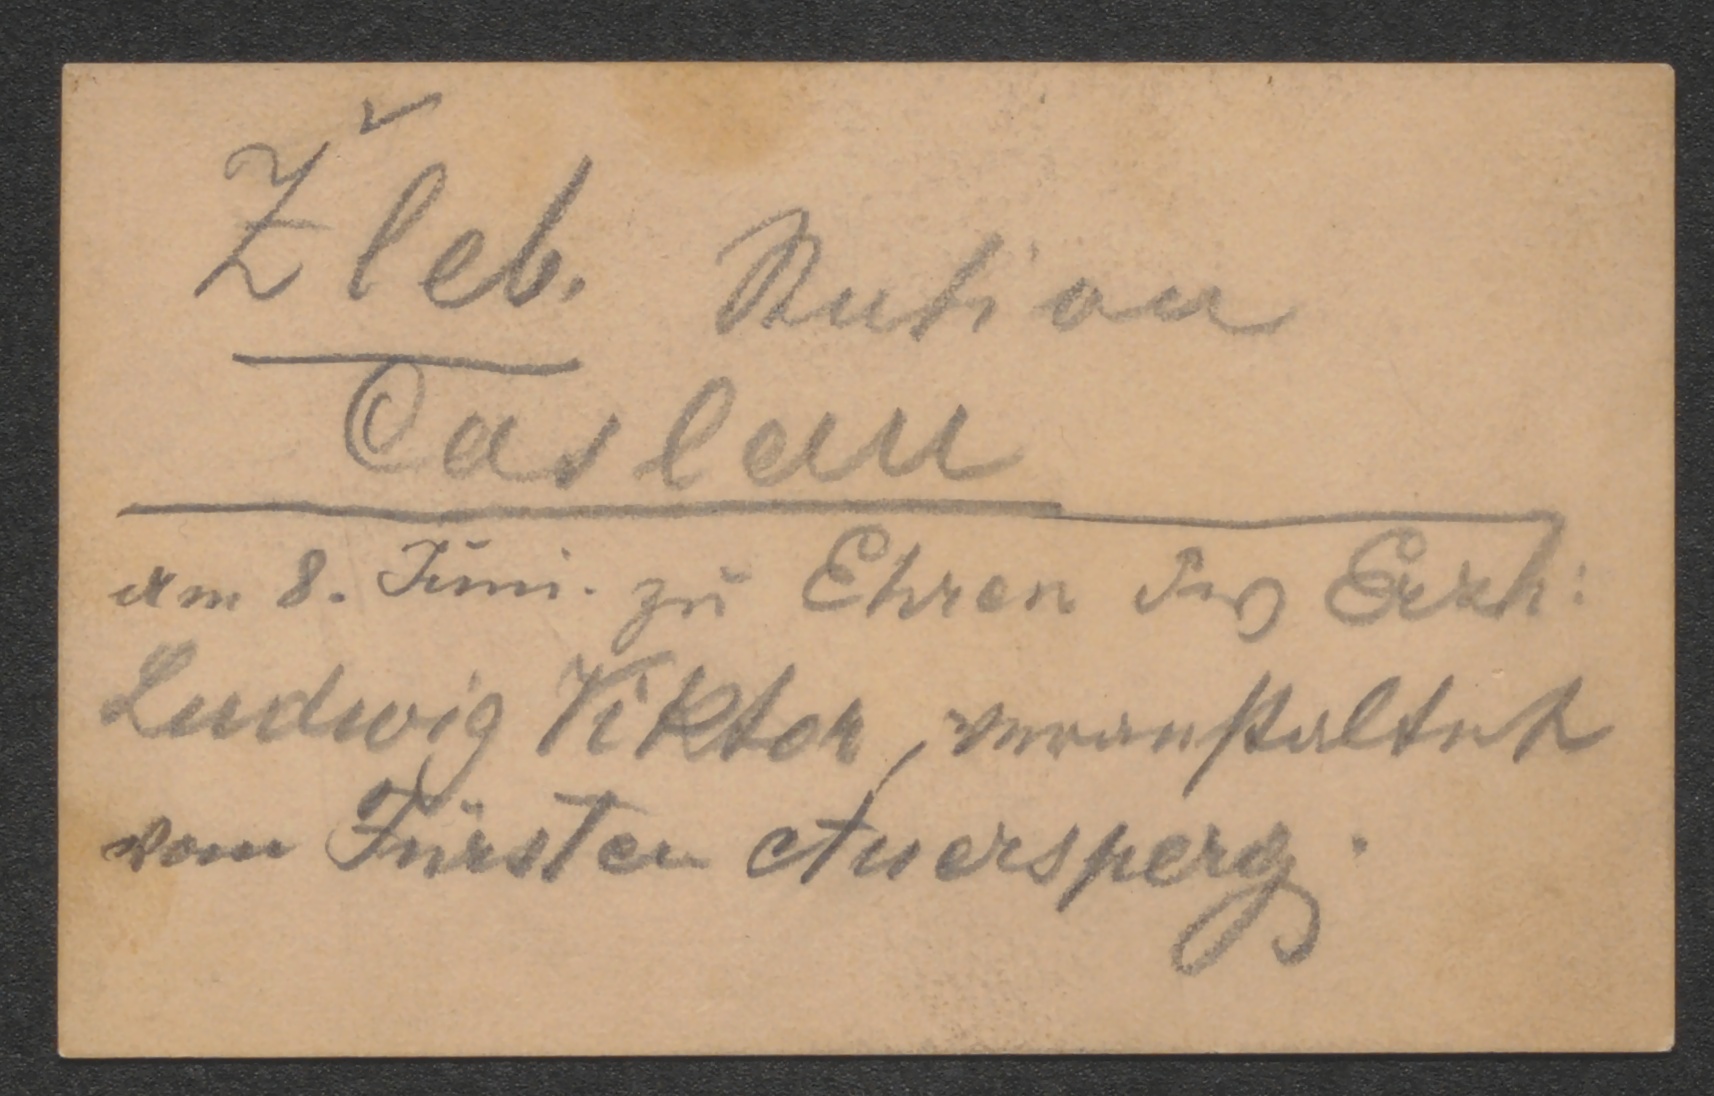 Žleb. Station
Caslau
am 8. Juni. zu Ehren des Erzh:
Ludwig Viktor, veranstaltet
vom Fürsten Auersperg.